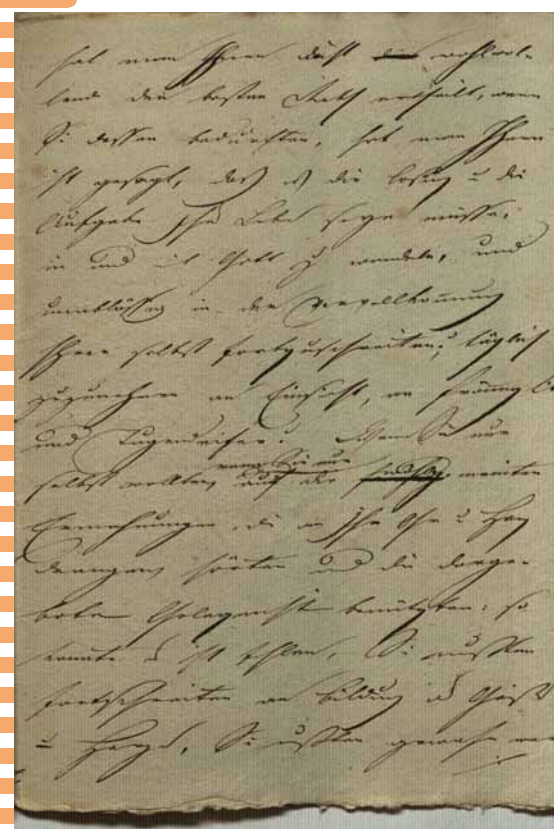 hat man Ihnen nicht wohlwol-
lend den besten Rath ertheilt, wenn
Sie dessen bedurften, hat man Ihnen
nicht gesagt, daß es die Losung u die
Aufgabe Ihres Lebens seyn müsse,
in und mit Gott zu wandeln, und
unablässig in der Vervollkommnung
Ihrer selbst fortzuschreiten, täglich
zuzunehmen an Einsicht, an
und Tugendeifer! Wenn Sie nur
selbst wollten, wenn Sie nur
auf die gemeinten
Ermahnungen, die an Ihr Ohr u Herz
drangen, hörten und die darge-
botene Gelegenheit benützten: so
konnte es nicht fehlen, Sie mußten
fortschreiten an Bildung des Geistes
u Herzens, Sie mußten